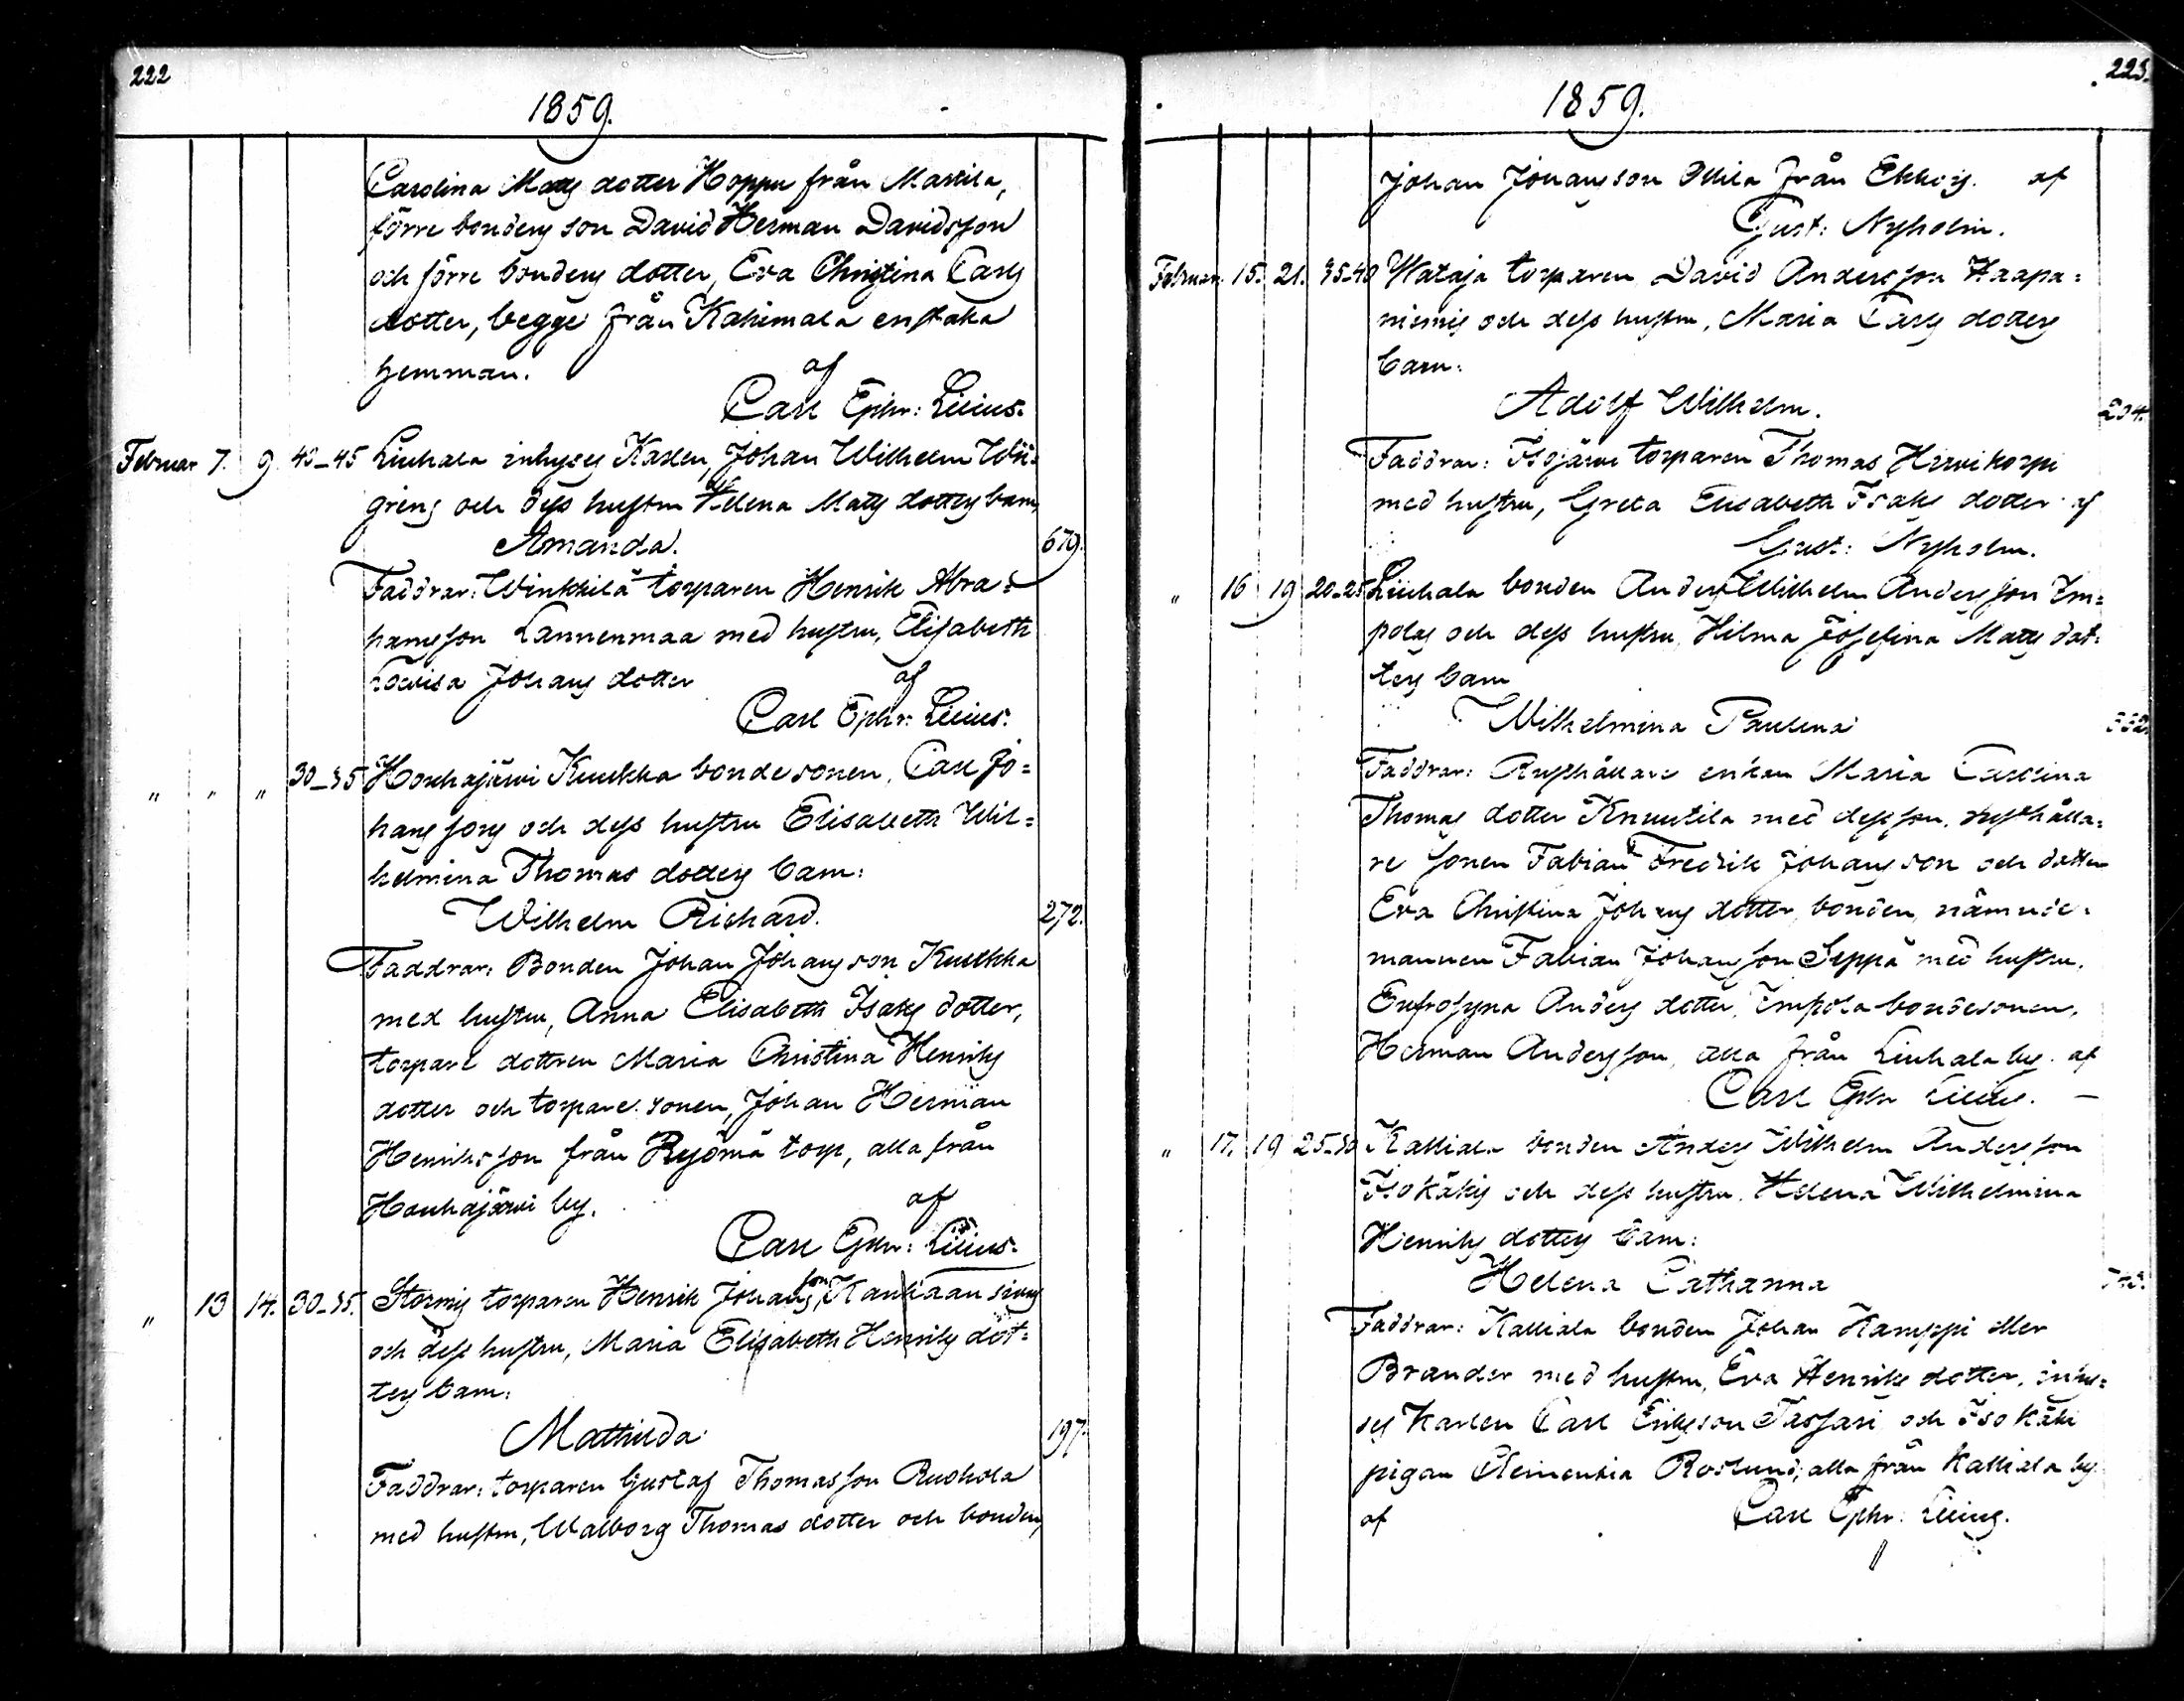 222
1859.
Carolina Mats dotter Hoppu från Mattila,
förre bondens son David Herman Davidsson
och förre bondens dotter, Eva Christina Carls
dotter, begge från Kahimala enstaka
hemman. af
Carl Ephr: Lilius.
Februar 7. 9. 40-45 Liuhala inhyses Karlen, Johan Wilhelm Wii=
grens och dess hustru Helena Mats dotters barn,
Amanda. 679.
Faddrar: Winkkilä torparen Henrik Abra=
hamsson Lannenmaa med hustru, Elisabeth
Lovisa Johans dotter af
Carl Ephr: Lilius.
" " " 30-35 Honhajärwi Kuukka bondesonen, Carl Jo=
hanssons och dess hustru Elisabeth Wil=
helmina Thomas dotters barn:
Wilhelm Richard. 272.
Faddrar: Bonden Johan Johansson Kuukka
med hustru, Anna Elisabeth Isaks dotter,
torpare dottren Maria Christina Henriks
dotter och torpare sonen, Johan Herman
Henriksson från Ryömä torp, alla från
Honhajärwi by. af
Carl Ephr: Lilius.
" 13 14. 30-35. Stormis torparen Henrik Johansson,
och dess hustru, Maria Elisabeth Henriks dot=
ters barn:
Mathilda 197.
Faddrar: torparen Gustaf Thomasson Ruohola
med hustru, Walborg Thomas dotter och bonden,
223.
1859.
Johan Johansson Ollila från Ekkois. af
Gust: Nyholm.
Februar. 15. 21. 35-40 Wataja torparen David Andersson Haapa=
niemis och dess hustru, Maria Carls dotters
barn:
Adolf Wilhelm. 204.
Faddrar: Isojärwi torparen Thomas Hirvikorpi
med hustru, Greta Elisabeth Isaks dotter af
Gust: Nyholm.
" 16 19 20-25 Liuhala bonden Anders Wilhelm Andersson Im=
polas och dess hustru, Hilma Josefina Mats dot=
ters barn
Wilhelmina Paulina
Faddrar: Rusthållare enkan Maria Carolina
Thomas dotter Knuutila med dess son, rusthålla=
re sonen Fabian Fredrik Johansson och dotter
Eva Christina Johans dotter, bonden, nämnde=
mannen Fabian Johansson Seppä med hustru,
Eufrosyna Anders dotter, Impola bondesonen,
Herman Andersson, alla från Liuhala by. af
Carl Ephr Lilius. —
" 17. 19 25-30 Kalliala bonden Anders Wilhelm Andersson
Isokäkis och dess hustru, Helena Wilhelmina
Henriks dotters barn:
Helena Catharina
Faddrar: Kalliala bonden Johan Kamppi eller
Brander med hustru, Eva Henriks dotter, inhy=
ses Karlen Carl Eriksson Tassari och Isokäki
pigan Clementia Roslund, alla från Kalliala by
af Carl Ephr: Lilius.